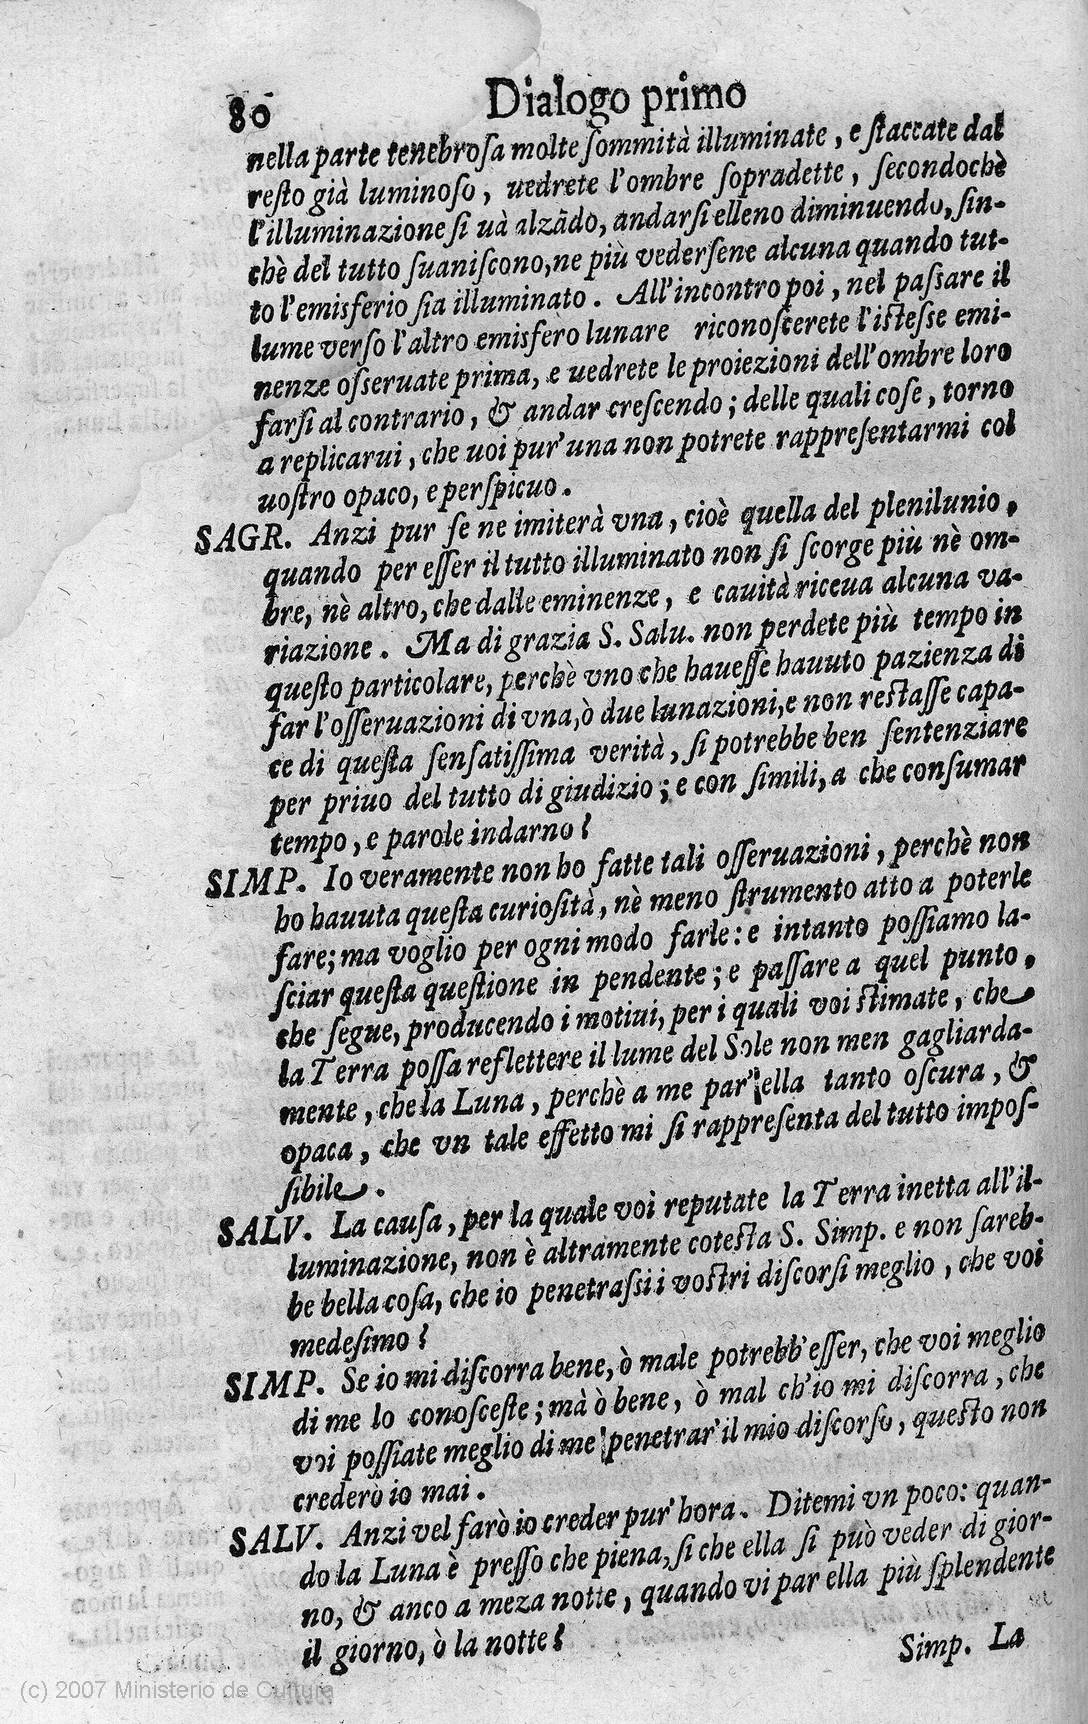 80 Dialogo primo
nella parte tenebroſa molte ſommità illuminate, e ſtaccate dal
reſto già luminoſo, uedrete l'ombre ſopradette, ſecondochè
l'illuminazione ſi uà alzãdo, andarſi elleno diminuendo, ſin-
chè del tutto ſuaniſcono, ne più vederſene alcuna quando tut-
to l'emisferio ſia illuminato. All'incontro poi, nel paſsare il
lume verſo l'altro emisfero lunare riconoſcerete l'iſteſse emi-
nenze oſseruate prima, e uedrete le proiezioni dell'ombre loro
farſi al contrario, & andar creſcendo; delle quali coſe, torno
a replicarui, che uoi pur'una non potrete rappreſentarmi col
uoſtro opaco, e perſpicuo.
SAGR. Anzi pur ſe ne imiterà vna, cioè quella del plenilunio,
quando per eſſer il tutto illuminato non ſi ſcorge più nè om-
bre, nè altro, che dalle eminenze, e cauità riceua alcuna va-
riazione. Ma di grazia S. Salu. non perdete più tempo in
queſto particolare, perchè vno che haueſſe hauuto pazienza di
far l'oſſeruazioni di vna, ò due lunazioni, e non reſtaſſe capa-
ce di queſta ſenſatiſſima verità, ſi potrebbe ben ſentenziare
per priuo del tutto di giudizio; e con ſimili, a che conſumar
tempo, e parole indarno?
SIMP. Io veramente non ho fatte tali oſſeruazioni, perchè non
ho hauuta queſta curioſità, nè meno ſtrumento atto a poterle
fare; ma voglio per ogni modo farle: e intanto poſſiamo la-
ſciar queſta queſtione in pendente; e paſſare a quel punto,
che ſegue, producendo i motiui, per i quali voi ſtimate, che
la Terra poſſa reflettere il lume del Sole non men gagliarda-
mente, che la Luna, perchè a me par' ella tanto oſcura, &
opaca, che vn tale effetto mi ſi rappreſenta del tutto impoſ-
ſibile.
SALV. La cauſa, per la quale voi reputate la Terra inetta all'il-
luminazione, non è altramente coteſta S. Simp. e non ſareb-
be bella coſa, che io penetraſsi i voſtri diſcorſi meglio, che voi
medeſimo?
SIMP. Se io mi diſcorra bene, ò male potrebb'eſſer, che voi meglio
di me lo conoſceſte; mà ò bene, ò mal ch'io mi diſcorra, che
voi poſſiate meglio di me penetrar' il mio diſcorſo, queſto non
crederò io mai.
SALV. Anzi vel farò io creder pur' hora. Ditemi vn poco: quan-
do la Luna è preſſo che piena, ſi che ella ſi può veder di gior-
no, & anco a meza notte, quando vi par ella più ſplendente
il giorno, ò la notte?
Simp. La
(c) 2007 Ministerio de Cultura